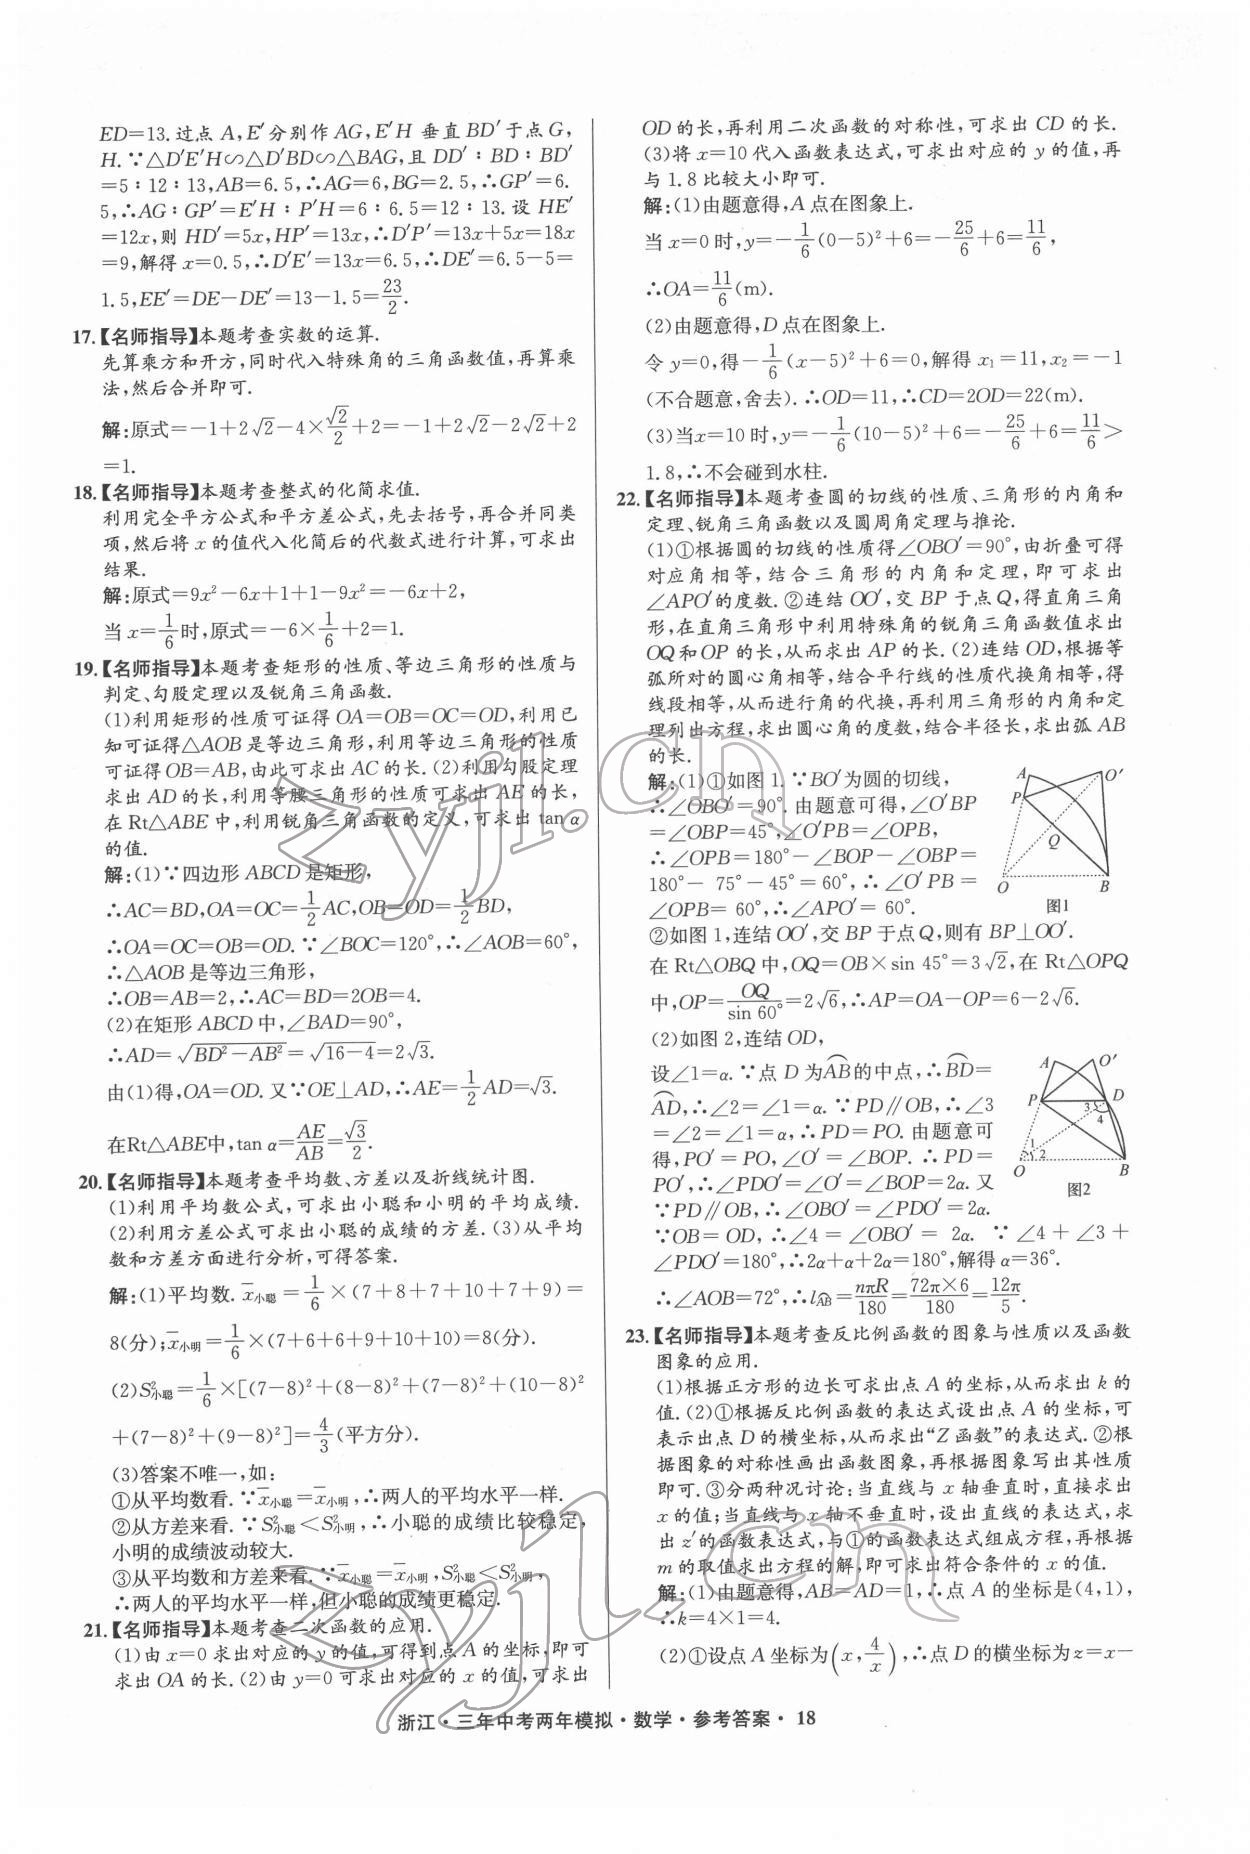 ED=13.过点A,E′分别作AG,E′H垂直BD′于点G,
H.∵△D′E′H∽△D′BD∽△BAG,且DD′∶BD∶BD′
=5∶12∶13,AB=6.5,∴AG=6,BG=2.5,∴GP′=6.
5,∴AG∶GP′=E′H∶P′H=6∶6.5=12∶13.设HE′
=12x,则HD′=5x,HP′=13x,∴D′P′=13x+5x=18x
=9,解得x=0.5,∴D′E′=13x=6.5,∴DE′=6.5-5=
1.5,EE′=DE-DE′=13-1.5=23/2.
17.【名师指导】本题考查实数的运算.
先算乘方和开方,同时代入特殊角的三角函数值,再算乘
法,然后合并即可.
解:原式=-1+2√2-4×√2/2+2=-1+2√2-2√2+2
=1.
18.【名师指导】本题考查整式的化简求值.
利用完全平方公式和平方差公式,先去括号,再合并同类
项,然后将x的值代入化简后的代数式进行计算,可求出
结果.
解:原式=9x²-6x+1+1-9x²=-6x+2,
当x=1/6时,原式=-6×1/6+2=1.
19.【名师指导】本题考查矩形的性质、等边三角形的性质与
判定、勾股定理以及锐角三角函数.
(1)利用矩形的性质可证得OA=OB=OC=OD,利用已
知可证得△AOB是等边三角形,利用等边三角形的性质
可证得OB=AB,由此可求出AC的长.(2)利用勾股定理
求出AD的长,利用等腰三角形的性质可求出AE的长,
在Rt△ABE中,利用锐角三角函数的定义,可求出tan α
的值.
解:(1)∵四边形ABCD是矩形,
∴AC=BD,OA=OC=1/2AC,OB=OD=1/2BD,
∴OA=OC=OB=OD.∵∠BOC=120°,∴∠AOB=60°,
∴△AOB是等边三角形,
∴OB=AB=2,∴AC=BD=2OB=4.
(2)在矩形ABCD中,∠BAD=90°,
∴AD=√(BD²-AB²)=√(16-4)=2√3.
由(1)得,OA=OD.又∵OE⊥AD,∴AE=1/2AD=√3.
在Rt△ABE中,tan α=AE/AB=√3/2.
20.【名师指导】本题考查平均数、方差以及折线统计图.
(1)利用平均数公式,可求出小聪和小明的平均成绩.
(2)利用方差公式可求出小聪的成绩的方差.(3)从平均
数和方差方面进行分析,可得答案.
解:(1)平均数.x̄小聪=1/6×(7+8+7+10+7+9)=
8(分);x̄小明=1/6×(7+6+6+9+10+10)=8(分).
(2)S²小聪=1/6×[(7-8)²+(8-8)²+(7-8)²+(10-8)²
+(7-8)²+(9-8)²]=4/3(平方分).
(3)答案不唯一,如:
①从平均数看.∵x̄小聪=x̄小明,∴两人的平均水平一样.
②从方差来看.∵S²小聪<S²小明,∴小聪的成绩比较稳定,
小明的成绩波动较大.
③从平均数和方差来看.∵x̄小聪=x̄小明,S²小聪<S²小明,
∴两人的平均水平一样,但小聪的成绩更稳定.
21.【名师指导】本题考查二次函数的应用.
(1)由x=0求出对应的y的值,可得到点A的坐标,即可
求出OA的长.(2)由y=0可求出对应的x的值,可求出
OD的长,再利用二次函数的对称性,可求出CD的长.
(3)将x=10代入函数表达式,可求出对应的y的值,再
与1.8比较大小即可.
解:(1)由题意得,A点在图象上.
当x=0时,y=-1/6(0-5)²+6=-25/6+6=11/6,
∴OA=11/6(m).
(2)由题意得,D点在图象上.
令y=0,得-1/6(x-5)²+6=0,解得x₁=11,x₂=-1
(不合题意,舍去).∴OD=11,∴CD=2OD=22(m).
(3)当x=10时,y=-1/6(10-5)²+6=-25/6+6=11/6>
1.8,∴不会碰到水柱.
22.【名师指导】本题考查圆的切线的性质、三角形的内角和
定理、锐角三角函数以及圆周角定理与推论.
(1)①根据圆的切线的性质得∠OBO′=90°,由折叠可得
对应角相等,结合三角形的内角和定理,即可求出
∠APO′的度数.②连结OO′,交BP于点Q,得直角三角
形,在直角三角形中利用特殊角的锐角三角函数值求出
OQ和OP的长,从而求出AP的长.(2)连结OD,根据等
弧所对的圆心角相等,结合平行线的性质代换角相等,得
线段相等,从而进行角的代换,再利用三角形的内角和定
理列出方程,求出圆心角的度数,结合半径长,求出弧AB
的长.
解:(1)①如图1.∵BO′为圆的切线,
∴∠OBO′=90°.由题意可得,∠O′BP
=∠OBP=45°,∠O′PB=∠OPB,
∴∠OPB=180°-∠BOP-∠OBP=
180°-75°-45°=60°,∴∠O′PB=
∠OPB=60°,∴∠APO′=60°.
A O′ P Q O B
图1
②如图1,连结OO′,交BP于点Q,则有BP⊥OO′.
在Rt△OBQ中,OQ=OB×sin 45°=3√2,在Rt△OPQ
中,OP=OQ/sin 60°=2√6,∴AP=OA-OP=6-2√6.
(2)如图2,连结OD,
设∠1=α.∵点D为⌒AB的中点,∴⌒BD=
⌒AD,∴∠2=∠1=α.∵PD∥OB,∴∠3
=∠2=∠1=α,∴PD=PO.由题意可
得,PO′=PO,∠O′=∠BOP.∴PD=
PO′,∴∠PDO′=∠O′=∠BOP=2α.又
∵PD∥OB,∴∠OBO′=∠PDO′=2α.
A O′ P D 3 4 1 2 O B
图2
∵OB=OD,∴∠4=∠OBO′=2α.∵∠4+∠3+
∠PDO′=180°,∴2α+α+2α=180°,解得α=36°.
∴∠AOB=72°,∴l⌒AB=nπR/180=72π×6/180=12π/5.
23.【名师指导】本题考查反比例函数的图象与性质以及函数
图象的应用.
(1)根据正方形的边长可求出点A的坐标,从而求出k的
值.(2)①根据反比例函数的表达式设出点A的坐标,可
表示出点D的横坐标,从而求出“Z函数”的表达式.②根
据图象的对称性画出函数图象,再根据图象写出其性质
即可.③分两种况讨论:当直线与x轴垂直时,直接求出
x的值;当直线与x轴不垂直时,设出直线的表达式,求
出z′的函数表达式,与①的函数表达式组成方程,再根据
m的取值求出方程的解,即可求出符合条件的x的值.
解:(1)由题意得,AB=AD=1,∴点A的坐标是(4,1),
∴k=4×1=4.
(2)①设点A坐标为(x,4/x),∴点D的横坐标为z=x-
浙江·三年中考两年模拟·数学·参考答案·18
zyjl.cn
zyjl.cn